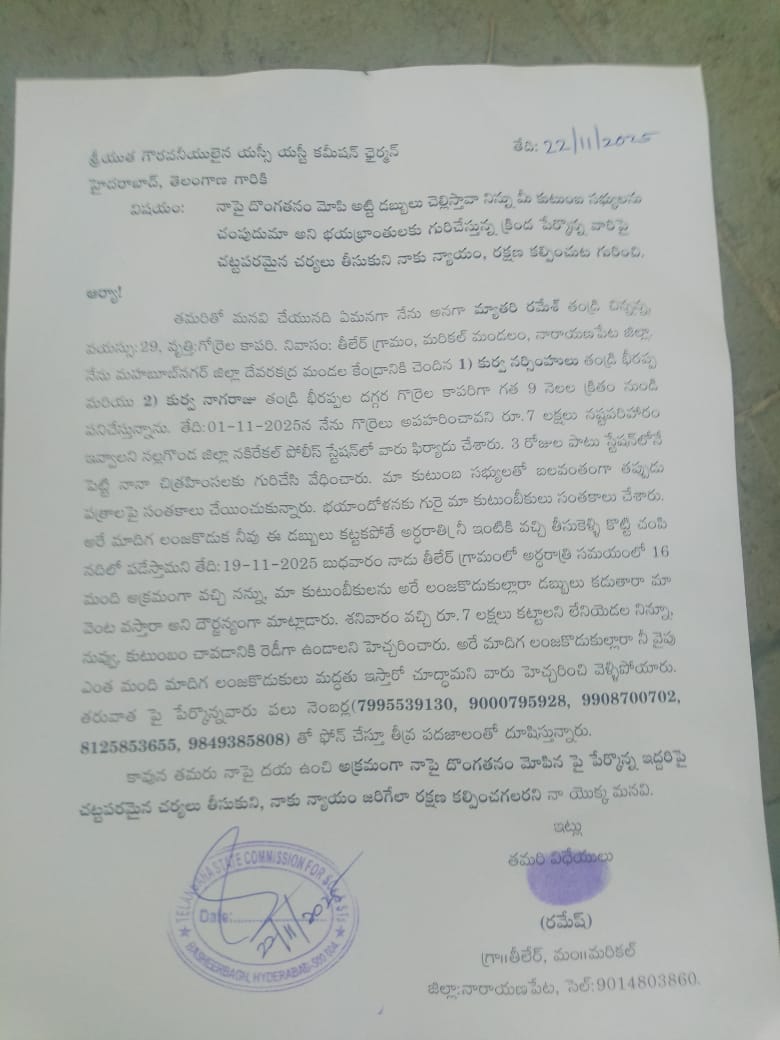 తేది: 22/11/2025
శ్రీయుత గౌరవనీయులైన యస్సీ యస్టీ కమీషన్ ఛైర్మన్
హైదరాబాద్, తెలంగాణ గారికి
విషయం: నాపై దొంగతనం మోపి అట్టి డబ్బులు చెల్లిస్తావా నిన్ను మీ కుటుంబ సభ్యులను
చంపుదుమా అని భయభ్రాంతులకు గురిచేస్తున్న క్రింద పేర్కొన్న వారిపై
చట్టపరమైన చర్యలు తీసుకుని నాకు న్యాయం, రక్షణ కల్పించుట గురించి.
ఆర్యా!
తమరితో మనవి చేయునది ఏమనగా నేను అనగా మ్యాతరి రమేశ్ తండ్రి చిన్నన్న,
వయస్సు:29, వృత్తి:గోర్రెల కాపరి. నివాసం: తీలేర్ గ్రామం, మరికల్ మండలం, నారాయణపేట జిల్లా.
నేను మహబూబ్‌నగర్ జిల్లా దేవరకద్ర మండల కేంద్రానికి చెందిన 1) కుర్వ నర్సింహులు తండ్రి భీరప్ప
మరియు 2) కుర్వ నాగరాజు తండ్రి భీరప్పల దగ్గర గొర్రెల కాపరిగా గత 9 నెలల క్రితం నుండి
పనిచేస్తున్నాను. తేది:01-11-2025న నేను గొర్రెలు అపహరించావని రూ.7 లక్షలు నష్టపరిహారం
ఇవ్వాలని నల్లగొండ జిల్లా నకిరేకల్ పోలీస్ స్టేషన్‌లో వారు ఫిర్యాదు చేశారు. 3 రోజుల పాటు స్టేషన్‌లోనే
పెట్టి నానా చిత్రహింసలకు గురిచేసి వేధించారు. మా కుటుంబ సభ్యులతో బలవంతంగా తప్పుడు
పత్రాలపై సంతకాలు చేయించుకున్నారు. భయాందోళనకు గురై మా కుటుంబీకులు సంతకాలు చేశారు.
అరే మాదిగ లంజకొడుక నీవు ఈ డబ్బులు కట్టకపోతే అర్ధరాత్రి నీ ఇంటికి వచ్చి తీసుకెళ్ళి కొట్టి చంపి
నదిలో పడేస్తామని తేది:19-11-2025 బుధవారం నాడు తీలేర్ గ్రామంలో అర్ధరాత్రి సమయంలో 16
మంది అక్రమంగా వచ్చి నన్ను, మా కుటుంబీకులను అరే లంజకొడుకుల్లారా డబ్బులు కడుతారా మా
వెంట వస్తారా అని దౌర్జన్యంగా మాట్లాడారు. శనివారం వచ్చి రూ.7 లక్షలు కట్టాలని లేనియెడల నిన్నూ,
నువ్వు, కుటుంబం చావడానికి రెడీగా ఉండాలని హెచ్చరించారు. అరే మాదిగ లంజకొడుకుల్లారా నీ వైపు
ఎంత మంది మాదిగ లంజకొడుకులు మద్దతు ఇస్తారో చూద్దామని వారు హెచ్చరించి వెళ్ళిపోయారు.
తరువాత పై పేర్కొన్నవారు పలు నెంబర్ల(7995539130, 9000795928, 9908700702,
8125853655, 9849385808) తో ఫోన్ చేస్తూ తీవ్ర పదజాలంతో దూషిస్తున్నారు.
కావున తమరు నాపై దయ ఉంచి అక్రమంగా నాపై దొంగతనం మోపిన పై పేర్కొన్న ఇద్దరిపై
చట్టపరమైన చర్యలు తీసుకుని, నాకు న్యాయం జరిగేలా రక్షణ కల్పించగలరని నా యొక్క మనవి.
ఇట్లు
తమరి విధేయులు
(రమేష్)
గ్రా॥తీలేర్, మం॥మరికల్
జిల్లా:నారాయణపేట, సెల్:9014803860.
TELANGANA STATE COMMISSION FOR SCs & STs
Date:
22/11/2025
BASHEERBAGH, HYDERABAD-500 004.